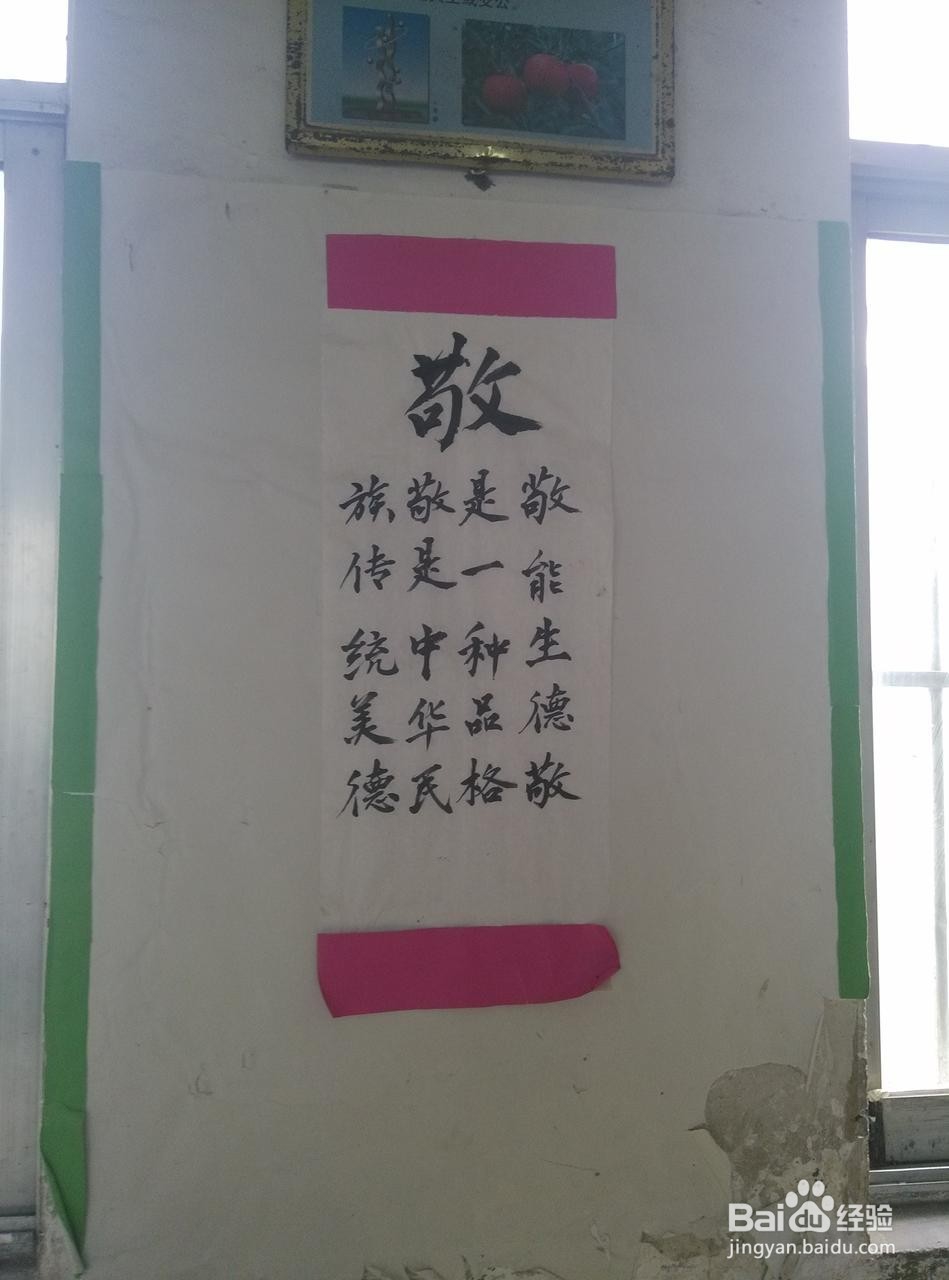 敬
敬能生德敬
是一种品格
敬是中华民
族传统美德
Baidu经验
jingyan.baidu.com